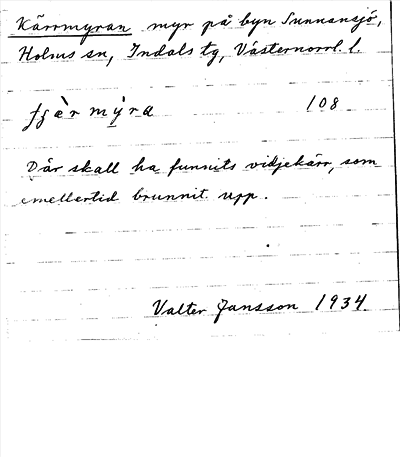 Kärrmyran myr på byn Sunnansjö,
Holms sn, Indals tg, Västernorrl. l.
fjæ̀r mỳra 108
Där skall ha funnits vidjekärr, som
emellertid brunnit upp.
Valter Jansson 1934.